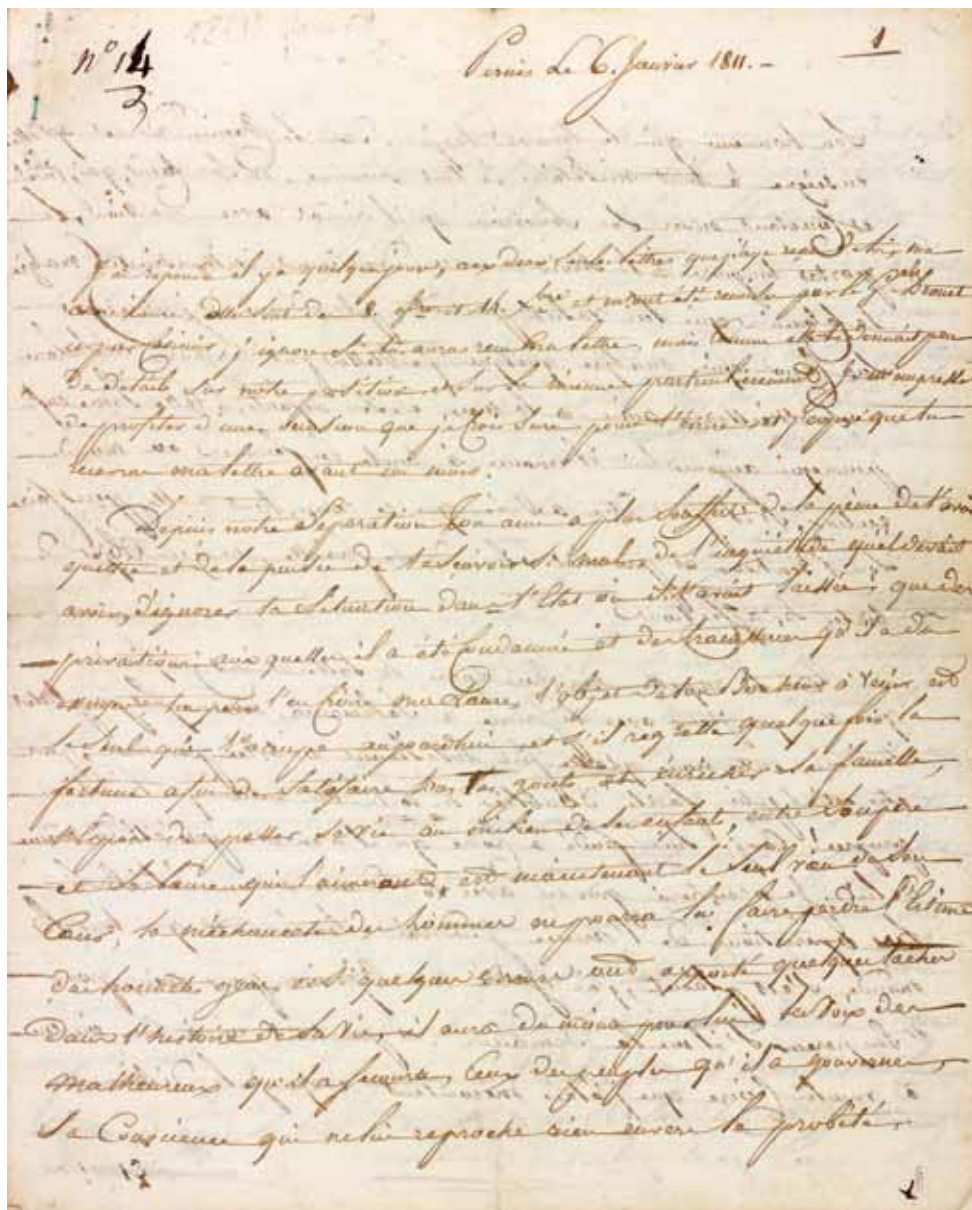 nº 14
3
1
Pernès Le 6. Janvier 1811. -
J'ai répondu il y a quelques jours, aux deux seules lettres que j'aye reçu de toi, ma
elles sont de 8. 9bre et 14. Xbre et m'ont été remises par le Gal Drouet
j'ignore si tu auras reçu ma lettre, mais comme elle te donnait peu
de détails sur notre position et sur la mienne particulièrement, je m'empresse
de profiter d'une occasion que je crois sure pour t'écrire et j'espère que tu
recevras ma lettre avant un mois.
Depuis notre séparation ton ami a plus souffert de la peine de t'avoir
quittée et de la pensée de te savoir si malheureuse de l'inquiétude qu'il devait
avoir d'ignorer ta situation dans l'état où il t'avait laissée, que des
privations aux quelles il a été condamné et des tracasseries qu'il a du
essuyer tu peux l'en croire ma Laure, l'objet de ton bonheur à venir est
le seul qui l'occupe aujourdhui et s'il regrette quelque fois la
fortune afin de satisfaire tes gouts et enrichir sa famille,
l'espoir de passer sa vie au milieu de ses enfants, entre
et sa Laure qu'il aimerait est maintenant le seul vœu de son
Cœur, la méchanceté des hommes ne pourra lui faire perdre l'estime
des honnêtes gens, et si quelques erreurs ont apporté quelques taches
dans l'histoire de sa vie, il aura du moins pour lui la voix des
malheureux qu'il a secourus, Ceux des peuples qu'il a gouvernés,
Sa Conscience qui ne lui reproche rien envers la probité,